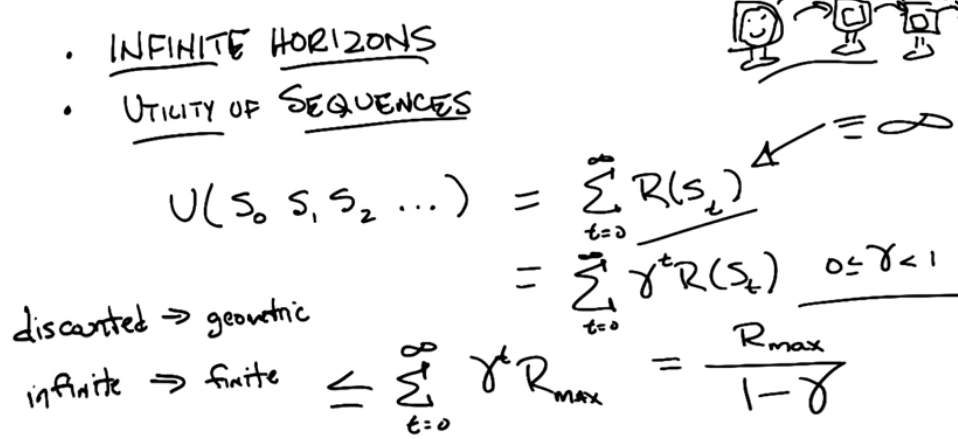 · INFINITE HORIZONS
· UTILITY OF SEQUENCES
≡ ∞
U( S₀ S₁ S₂ ... ) = ∑_{t=0}^{∞} R(S_t)
= ∑_{t=0}^{∞} γ^t R(S_t) 0 ≤ γ < 1
discounted ⇒ geometric
infinite ⇒ finite ≤ ∑_{t=0}^{∞} γ^t R_max = R_max / 1-γ